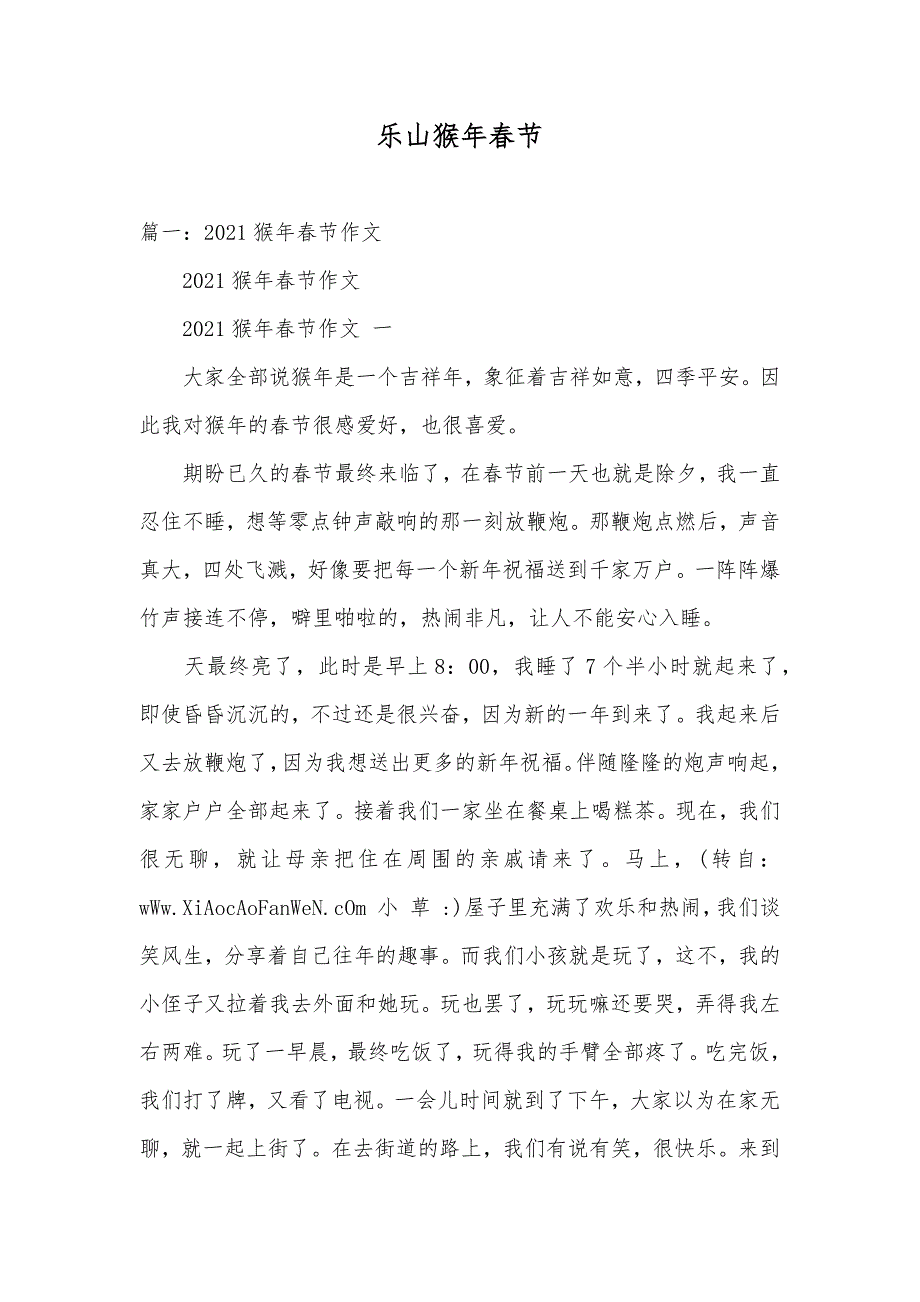 乐山猴年春节
篇一：2021猴年春节作文
2021猴年春节作文
2021猴年春节作文 一
大家全部说猴年是一个吉祥年，象征着吉祥如意，四季平安。因
此我对猴年的春节很感爱好，也很喜爱。
期盼已久的春节最终来临了，在春节前一天也就是除夕，我一直
忍住不睡，想等零点钟声敲响的那一刻放鞭炮。那鞭炮点燃后，声音
真大，四处飞溅，好像要把每一个新年祝福送到千家万户。一阵阵爆
竹声接连不停，噼里啪啦的，热闹非凡，让人不能安心入睡。
天最终亮了，此时是早上8：00，我睡了7个半小时就起来了，
即使昏昏沉沉的，不过还是很兴奋，因为新的一年到来了。我起来后
又去放鞭炮了，因为我想送出更多的新年祝福。伴随隆隆的炮声响起，
家家户户全部起来了。接着我们一家坐在餐桌上喝糕茶。现在，我们
很无聊，就让母亲把住在周围的亲戚请来了。马上，(转自：
wWw.XiAocAoFanWeN.cOm 小 草 :)屋子里充满了欢乐和热闹，我们谈
笑风生，分享着自己往年的趣事。而我们小孩就是玩了，这不，我的
小侄子又拉着我去外面和她玩。玩也罢了，玩玩嘛还要哭，弄得我左
右两难。玩了一早晨，最终吃饭了，玩得我的手臂全部疼了。吃完饭，
我们打了牌，又看了电视。一会儿时间就到了下午，大家以为在家无
聊，就一起上街了。在去街道的路上，我们有说有笑，很快乐。来到